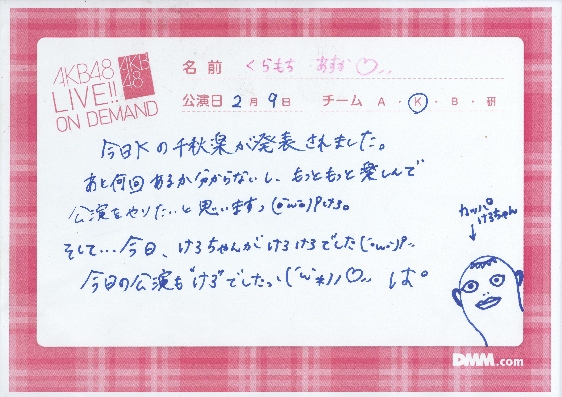 AKB48
LIVE!!
ON DEMAND
AKB
48
名前 くらもち あすか♡
公演日 2月9日 チーム A・K・B・研
今日Kの千秋楽が発表されました。
あと何回あるか分からないし、もっともっと楽しんで
公演をやりたいと思いますっ(・ω・)けろ。
そして…今日、けろちゃんがけろけろでした
今日の公演も"ける"でしたっ♡ は。
カッパ
けろちゃん
DMM.com